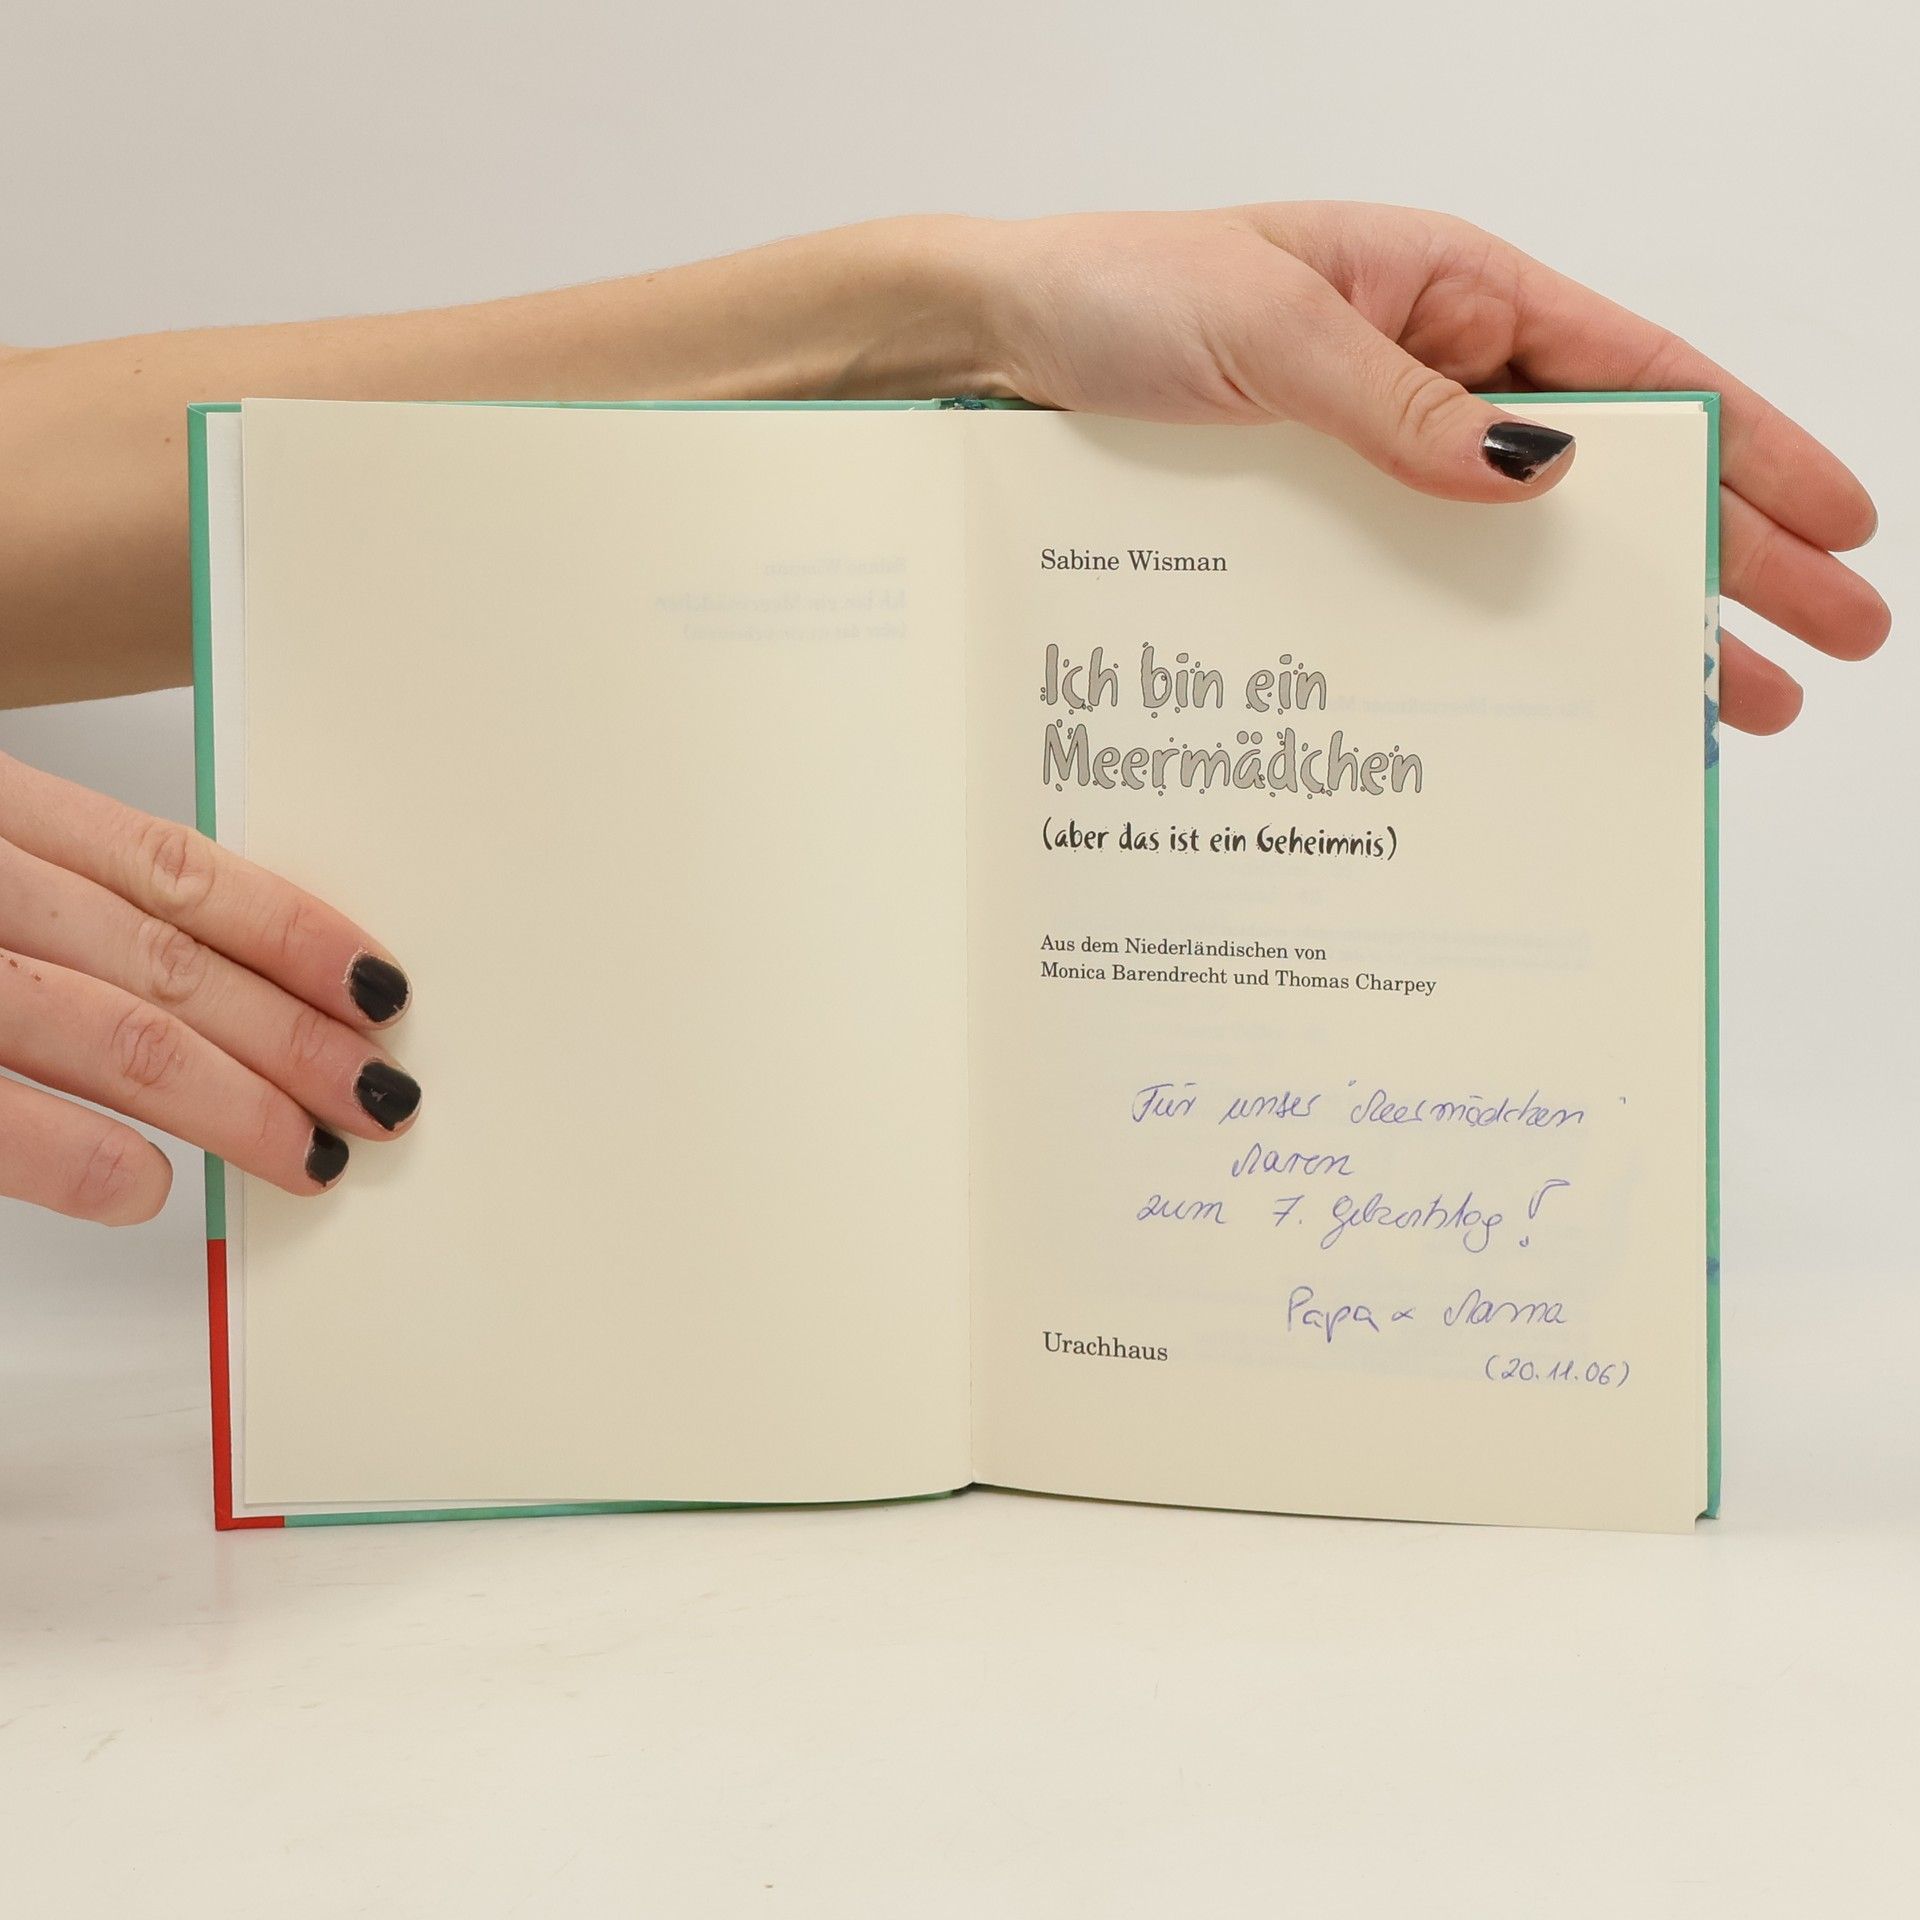 Sabine Wisman
Ich bin ein
Meermädchen
(aber das ist ein Geheimnis)
Aus dem Niederländischen von
Monica Barendrecht und Thomas Charpey
Für unser "Meermädchen"
Maren
zum 7. Geburtstag!
Papa & Mama
Urachhaus
(20.11.06)